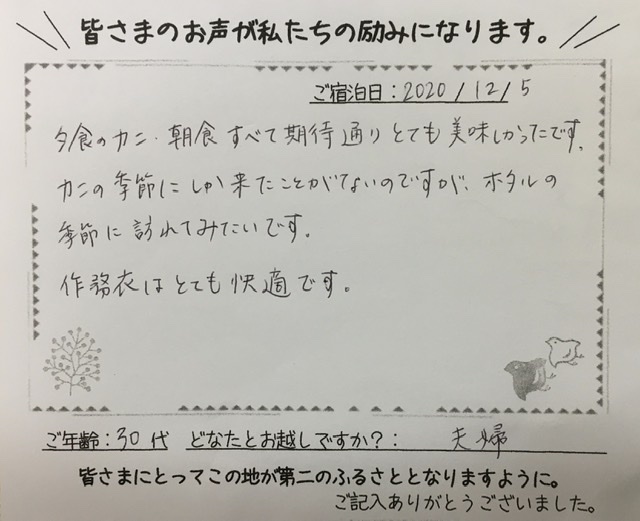 皆さまのお声が私たちの励みになります。
ご宿泊日：2020/12/5
夕食のカニ・朝食すべて期待通りとても美味しかったです。
カニの季節にしか来たことがないのですが、ホタルの
季節に訪れてみたいです。
作務衣はとても快適です。
ご年齢：30代 どなたとお越しですか？： 夫婦
皆さまにとってこの地が第二のふるさととなりますように。
ご記入ありがとうございました。